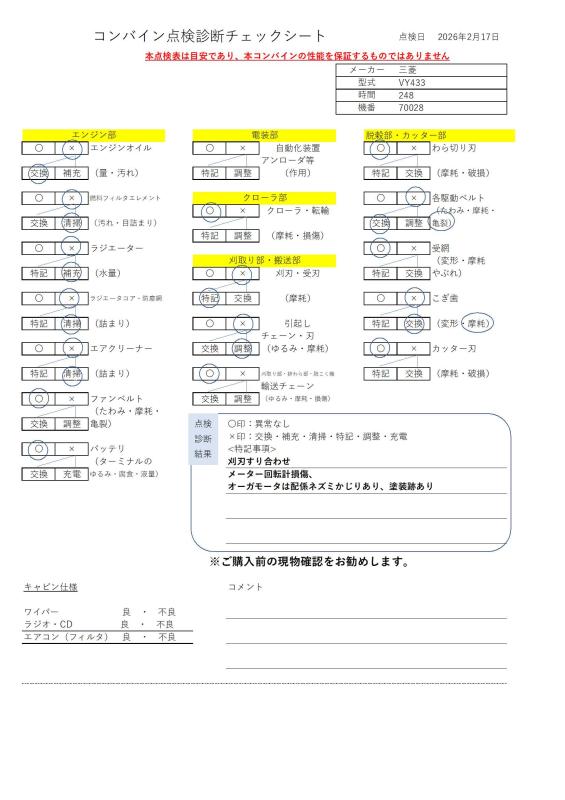 コンバイン点検診断チェックシート
点検日 2026年2月17日
本点検表は目安であり、本コンバインの性能を保証するものではありません
メーカー 三菱
型式 VY433
時間 248
機番 70028
エンジン部
○ × エンジンオイル
交換 補充 (量・汚れ)
○ × 燃料フィルタエレメント
交換 清掃 (汚れ・目詰まり)
○ × ラジエーター
特記 補充 (水量)
○ × ラジエータコア・防塵網
特記 清掃 (詰まり)
○ × エアクリーナー
特記 清掃 (詰まり)
○ × ファンベルト
(たわみ・摩耗・
交換 調整 亀裂)
○ × バッテリ
(ターミナルの
交換 充電 ゆるみ・腐食・液量)
電装部
○ × 自動化装置
アンローダ等
特記 調整 (作用)
クローラ部
○ × クローラ・転輪
特記 調整 (摩耗・損傷)
刈取り部・搬送部
○ × 刈刃・受刃
特記 交換 (摩耗)
○ × 引起し
チェーン・刃
交換 調整 (ゆるみ・摩耗)
○ ×
輸送チェーン
交換 調整 (ゆるみ・摩耗・損傷)
脱穀部・カッター部
○ × わら切り刃
特記 交換 (摩耗・破損)
○ × 各駆動ベルト
(たわみ・摩耗・
交換 調整 亀裂)
○ × 受網
(変形・摩耗
特記 交換 やぶれ)
○ × こぎ歯
特記 交換 (変形・摩耗)
○ × カッター刃
特記 交換 (摩耗・破損)
点検
診断
結果
○印：異常なし
×印：交換・補充・清掃・特記・調整・充電
<特記事項>
刈刃すり合わせ
メーター回転計損傷、
オーガモータは配係ネズミかじりあり、塗装跡あり
※ご購入前の現物確認をお勧めします。
キャビン仕様
コメント
ワイパー 良 ・ 不良
ラジオ・CD 良 ・ 不良
エアコン（フィルタ） 良 ・ 不良